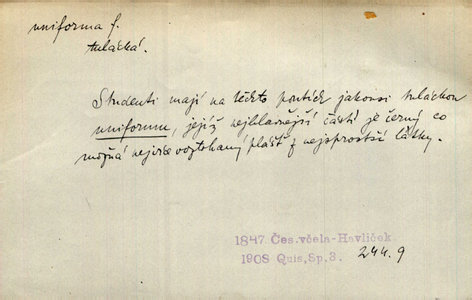 uniforma f.
tulácká.
Studenti mají na těchto poutích jakousi tuláckou
uniformu, jejíž nejhlavnější částí je černý co
možná nejvíce roztrhaný plášť z nejsprostší látky.
1847 Čes.včela-Havlíček.
1908 Quis,Sp,3. 244.9